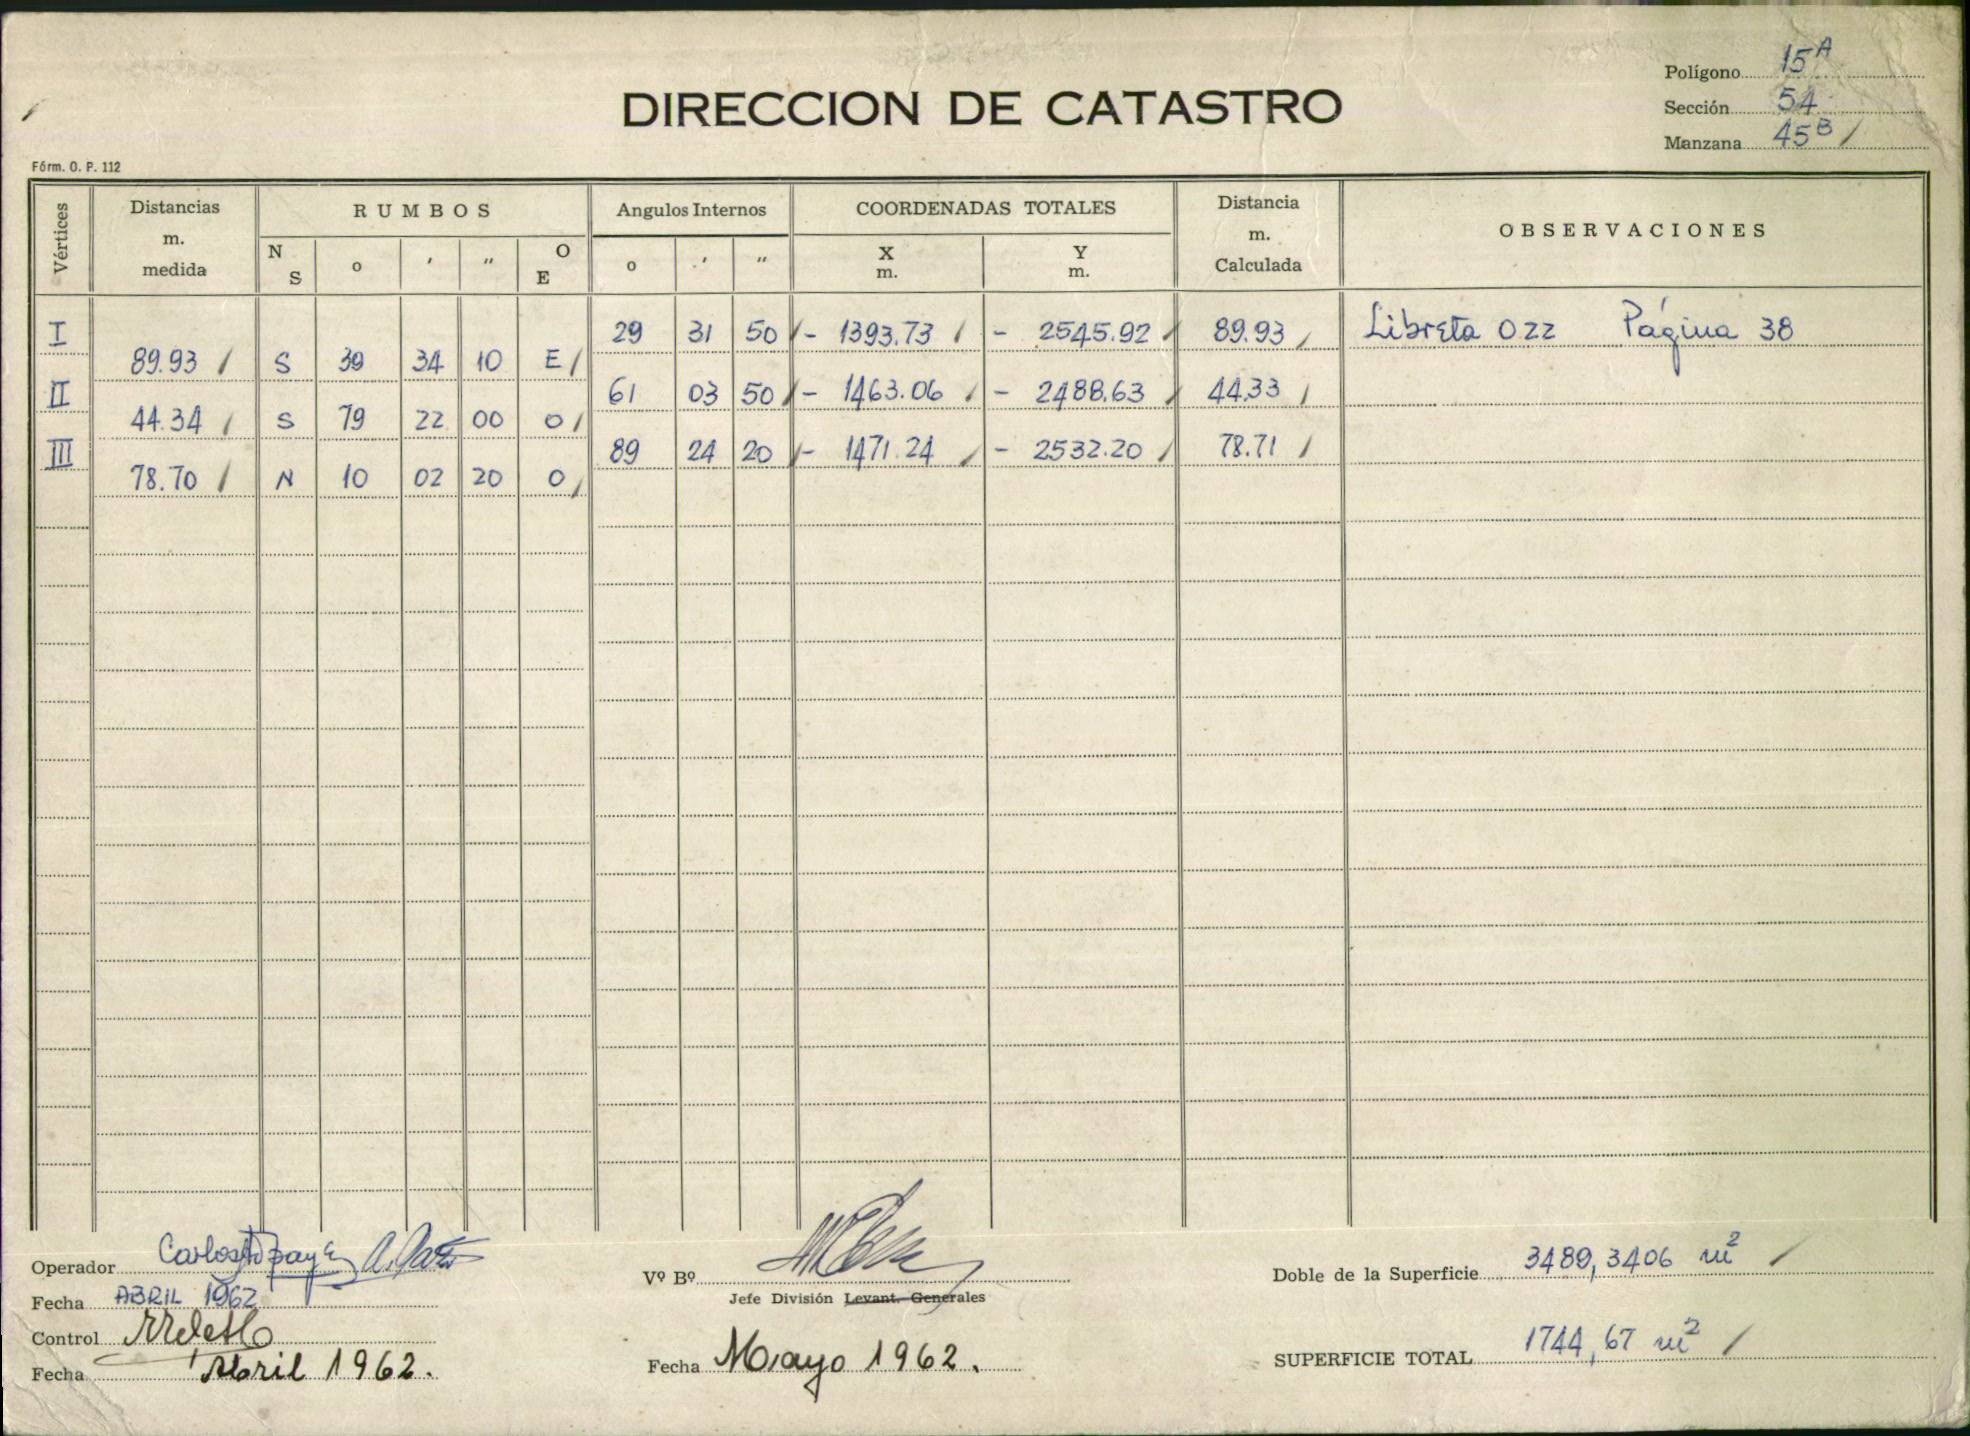 Polígono 15A
Sección 54
DIRECCION DE CATASTRO
Manzana 45B /
Fórm. O. P. 112
Vértices Distancias m. medida RUMBOS Angulos Internos COORDENADAS TOTALES Distancia m. Calculada OBSERVACIONES
N S o ' " O E o ' " X m. Y m.
I 29 31 50 / - 1393.73 / - 2545.92 / 89.93 / Libreta 022 Página 38
89.93 / S 39 34 10 E /
II 61 03 50 / - 1463.06 / - 2488.63 / 44.33 /
44.34 / S 79 22 00 O /
III 89 24 20 / - 1471.24 / - 2532.20 / 78.71 /
78.70 / N 10 02 20 O /
Operador Carlos
Vº Bº
Doble de la Superficie 3489,3406 m2 /
Fecha ABRIL 1962
Jefe División Levant. Generales
Control
Fecha Abril 1962.
Fecha Mayo 1962.
SUPERFICIE TOTAL 1744,67 m2 /